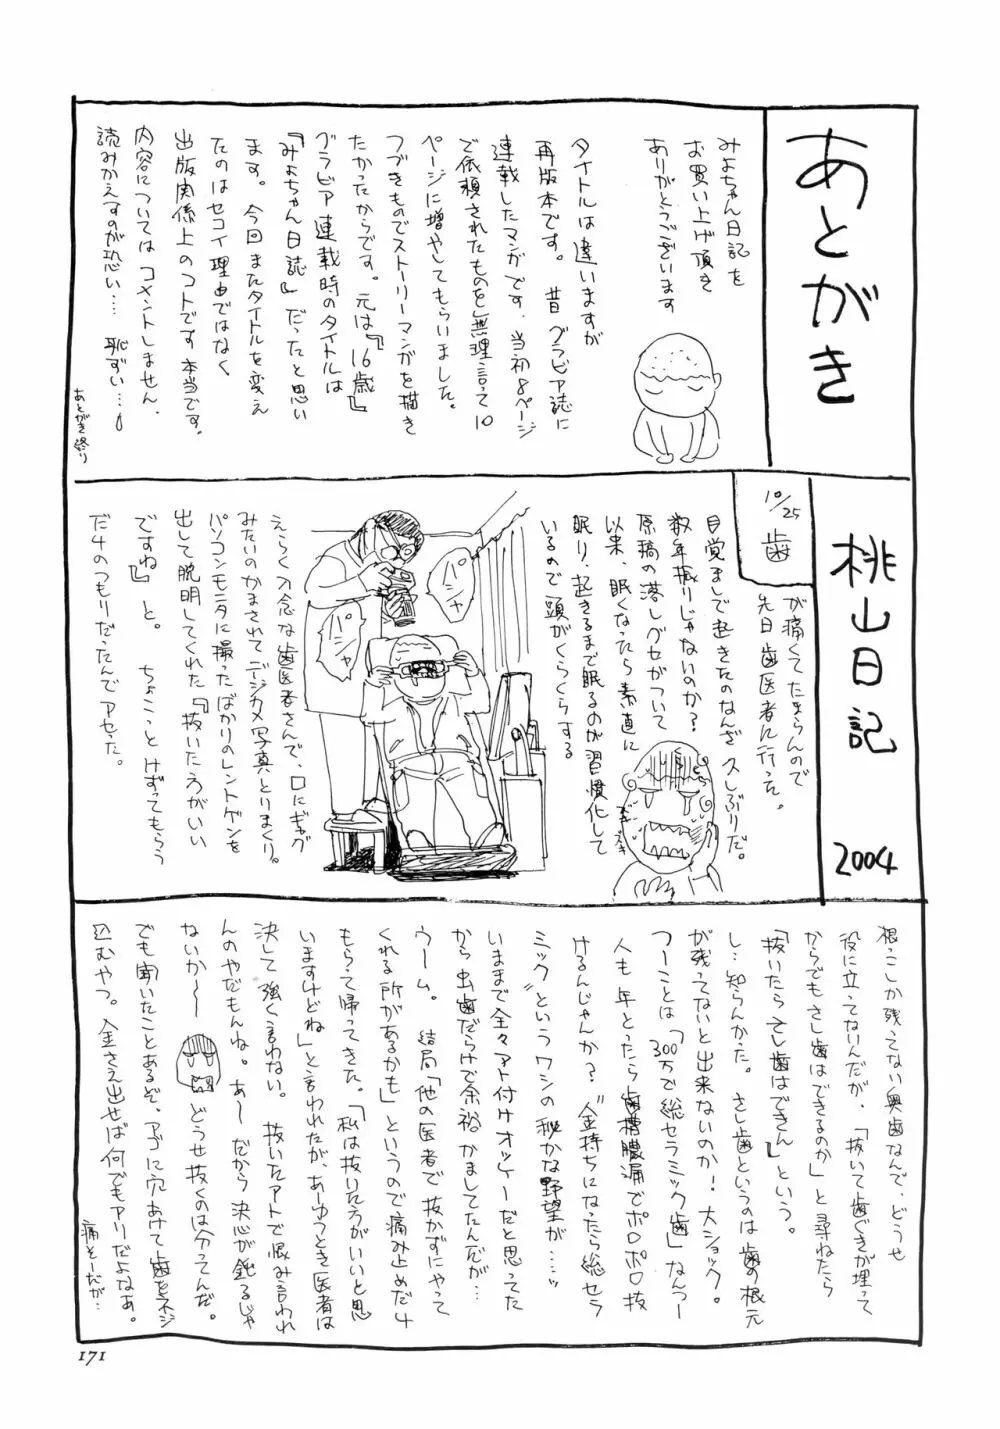 あとがき
みよちゃん日記を
お買い上げ頂き
ありがとうございます
タイトルは違いますが
再版本です。昔グラビア誌に
連載したマンガです。当初8ページ
で依頼されたものを無理言って10
ページに増やしてもらいました。
つづきものでストーリーマンガを描き
たかったからです。元は『16歳』
グラビア連載時のタイトルは
『みよちゃん日誌』だったと思い
ます。今回またタイトルを変え
たのはセコイ理由ではなく
出版関係上のコトです本当です。
内容についてはコメントしません。
読みかえすのが恐い…恥ずい…
あとがき終り
桃山日記
2004
10/25
歯
が痛くてたまらんので
先日歯医者に行った。
目覚ましで起きたのなんざ久しぶりだ。
数年振りじゃないのか?
原稿の落しグセがついて
以来、眠くなったら素直に
眠り、起きるまで眠るのが習慣化して
いるので頭がくらくらする
ズキ
ズキ
パシャ
パシャ
えらく入念な歯医者さんで、口にギャグ
みたいのかまされてデジカメ写真とりまくり。
パソコンモニタに撮ったばかりのレントゲンを
出して説明してくれた『抜いた方がいい
ですね』と。ちょこっとけずってもらう
だけのつもりだったんでアセった。
根っこしか残ってない奥歯なんで、どうせ
役に立ってないんだが、「抜いて歯ぐきが埋って
からでもさし歯はできるのか」と尋ねたら
「抜いたらさし歯はできん」という。
し…知らんかった。さし歯というのは歯の根元
が残ってないと出来ないのか!大ショック。
つーことは「300万で総セラミック歯」なんつー
人も年とったら歯槽膿漏でポロポロ抜
けるんじゃんか?"金持ちになったら総セラ
ミック"というワシの秘かな野望が……ッ
いままで全々アト付けオッケーだと思ってた
から虫歯だらけで余裕かましてたんだが…
ウーム。結局「他の医者で抜かずにやって
くれる所があるかも」というので痛み止めだけ
もらって帰ってきた。「私は抜いた方がいいと思
いますけどね」と言われたが、あーゆうとき医者は
決して強く言わない。抜いたアトで恨み言われ
んのやだもんね。あ〜だから決心が鈍るじゃ
ないか〜〜どうせ抜くのは分ってんだ。
でも聞いたことあるぞ、アゴに穴あけて歯をネジ
込むやつ。金さえ出せば何でもアリだよなあ。
痛そーだが…
171